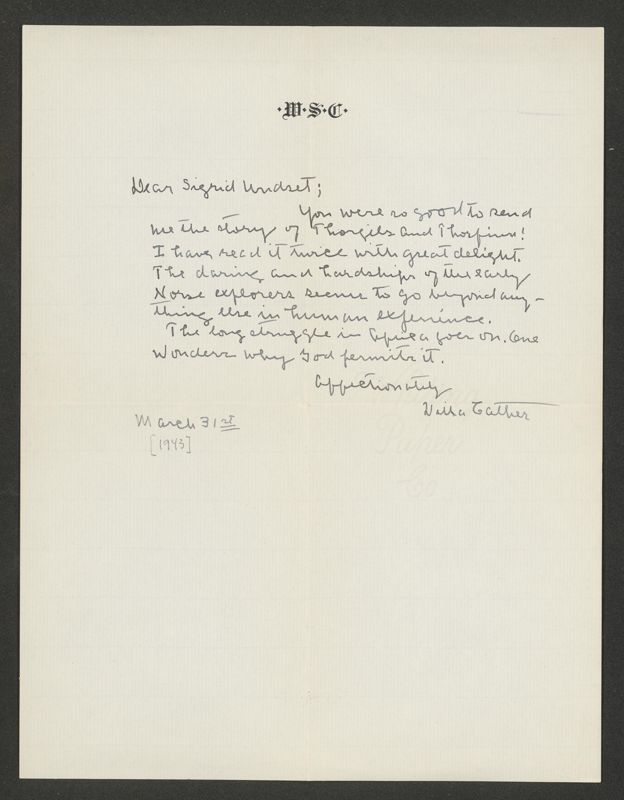 ·W·S·C·
Dear Sigrid Undset;
You were so good to send
me the story of Thorgils and Thorfinn!
I have read it twice with great delight.
The daring and hardships of the early
Norse explorers seems to go beyond any-
thing else in human experience.
The long struggle in Africa goes on. One
wonders why God permits it.
Affectionately
Willa Cather
March 31st
[1943]
Paper
Co